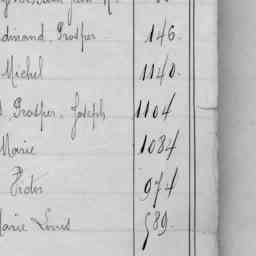 dinand, Prosper 146.
Michel 1140.
Prosper, Joseph 1104
Marie 1084
Victor 974
Marie Louis 589.